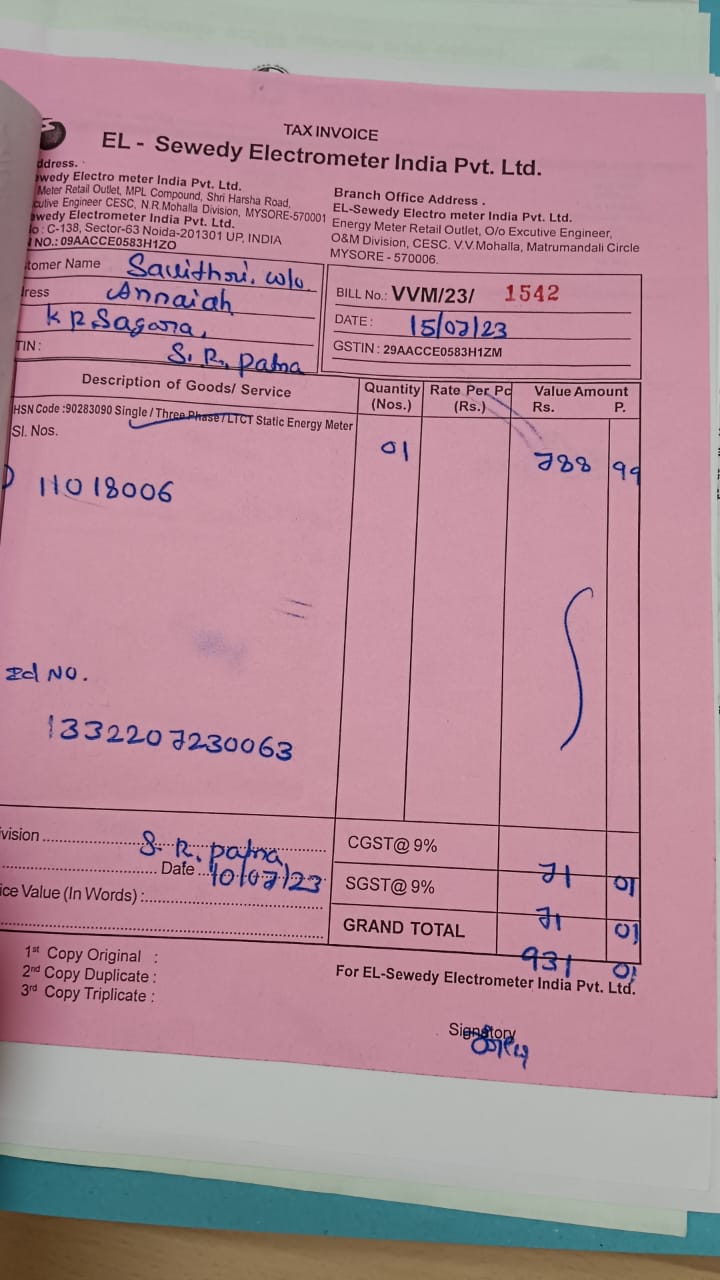 TAX INVOICE
EL - Sewedy Electrometer India Pvt. Ltd.
ddress.
wedy Electro meter India Pvt. Ltd.
Meter Retail Outlet, MPL Compound, Shri Harsha Road,
cutive Engineer CESC, N.R.Mohalla Division, MYSORE-570001
wedy Electrometer India Pvt. Ltd.
o : C-138, Sector-63 Noida-201301 UP, INDIA
NO.: 09AACCE0583H1ZO
Branch Office Address .
EL-Sewedy Electro meter India Pvt. Ltd.
Energy Meter Retail Outlet, O/o Excutive Engineer,
O&M Division, CESC. V.V.Mohalla, Matrumandali Circle
MYSORE - 570006.
tomer Name Savithri. w/o.
ress Annaiah
K R Sagara,
TIN: S. R. patna
BILL No.: VVM/23/ 1542
DATE : 15/07/23
GSTIN : 29AACCE0583H1ZM
Description of Goods/ Service Quantity (Nos.) Rate Per Pc (Rs.) Value Amount Rs. P.
HSN Code :90283090 Single / Three Phase / LTCT Static Energy Meter
Sl. Nos. 01 788 99
11018006
Id NO.
1332207230063
vision S. R. patna
Date 10/07/23
ice Value (In Words) :
CGST@ 9% 71 01
SGST@ 9% 71 01
GRAND TOTAL 931 01
1st Copy Original :
2nd Copy Duplicate :
3rd Copy Triplicate :
For EL-Sewedy Electrometer India Pvt. Ltd.
Signatory